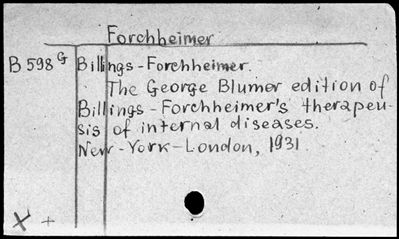 Forchheimer
B 598 G Billings-Forchheimer.
The George Blumer edition of
Billings-Forchheimer's therapeu-
sis of internal diseases.
New-York-London, 1931
X +